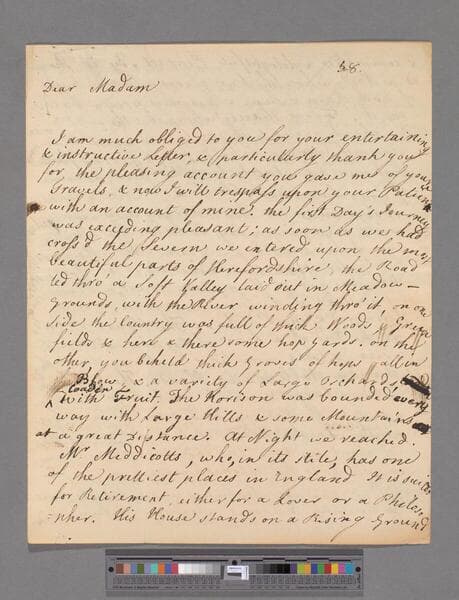 58.
Dear Madam
I am much obliged to you for your entertaining
& instructive Letter, & particularly thank you
for, the pleasing account you gave me of your
Travels, & now I will trespass upon your Patience
with an account of mine. the first Day's Journey
was exceeding pleasant; as soon as we had
cross'd the Severn we entered upon the most
beautiful parts of Herefordshire, the Road
led thro' a Soft Valley laid out in Meadow-
Grounds, with the River winding thro' it, on one
side the Country was full of thick Woods Green
fields & here & there some hop yards. on the
other, you beheld thick Groves of hops all in
Blow & a a variety of Large Orchards
Loaden with Fruit. The Horison was bounded every
way with Large Hills & some Mountains
at a great Distance. At Night we reached
Mr Meddicotts, who, in its stile, has one
of the prettiest places in England It is suited
for Retirement, either for a Lover or a Philoso
=pher. His House stands on a Rising Ground